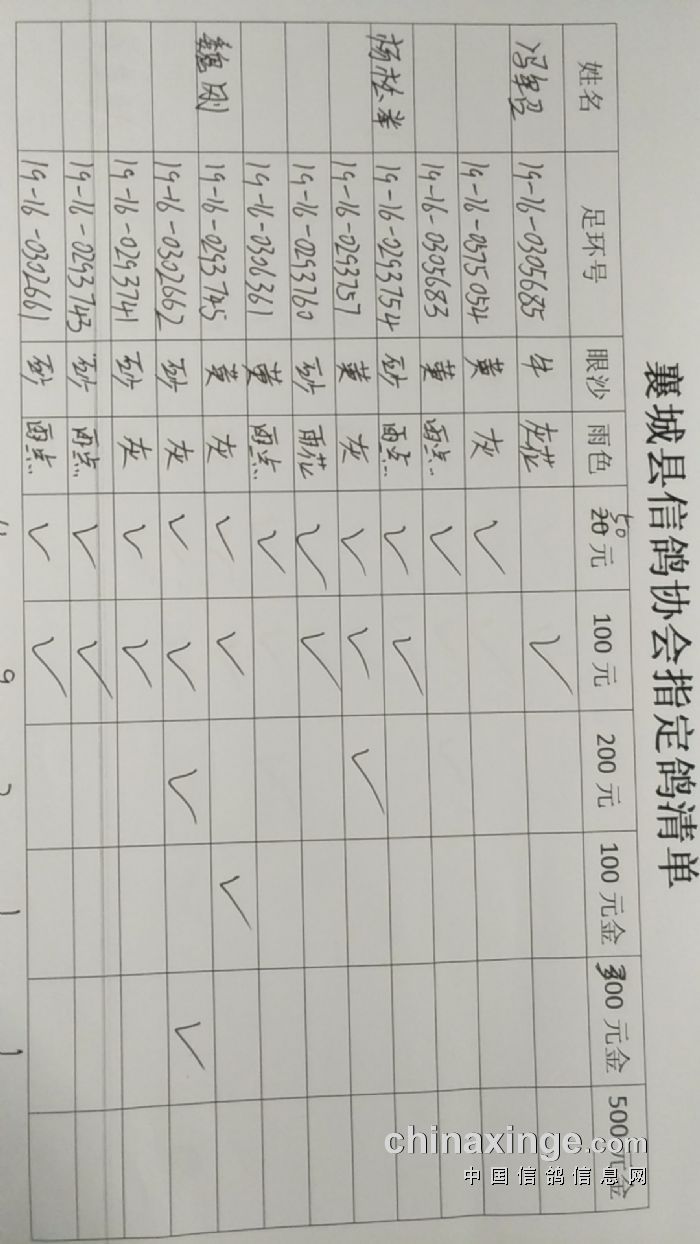 襄城县信鸽协会指定鸽清单
姓名 足环号 眼沙 雨色 50元 100元 200元 100元金 300元金 500元金
19-16-0305685 牛 灰花 ✓
19-16-0575054 黄 灰 ✓
19-16-0305683 黄 雨点 ✓
杨松峯 19-16-0293754 砂 雨点 ✓ ✓
19-16-0293757 黄 灰 ✓ ✓ ✓
19-16-0293760 砂 雨花 ✓ ✓
19-16-0306361 黄 雨点 ✓
魏刚 19-16-0293745 黄 灰 ✓ ✓ ✓
19-16-0302662 砂 灰 ✓ ✓ ✓ ✓
19-16-0293741 砂 灰 ✓ ✓
19-16-0293743 砂 雨点 ✓ ✓
19-16-0302661 砂 雨点 ✓ ✓
9 2 1 1
chinaxinge.com
中国信鸽信息网